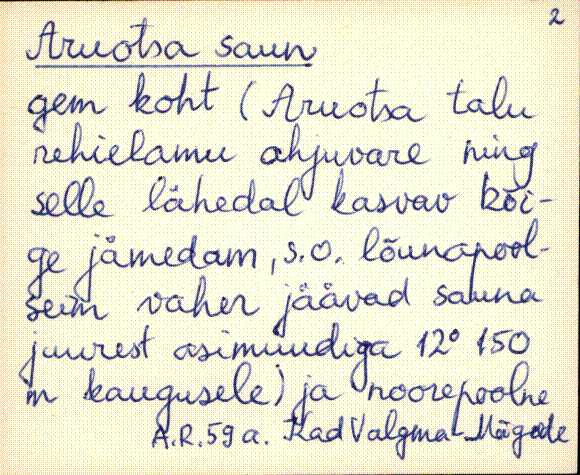 2
Aruotsa saun
gem koht (Aruotsa talu
rehielamu ahjuvare ning
selle lähedal kasvav kõi-
ge jämedam, s.o. lõunapool-
seim vaher jäävad sauna
juurest asimuudiga 12° 150
m kaugusele) ja noorepoolne
A.R. 59 a. Kad Valgma-Mägede